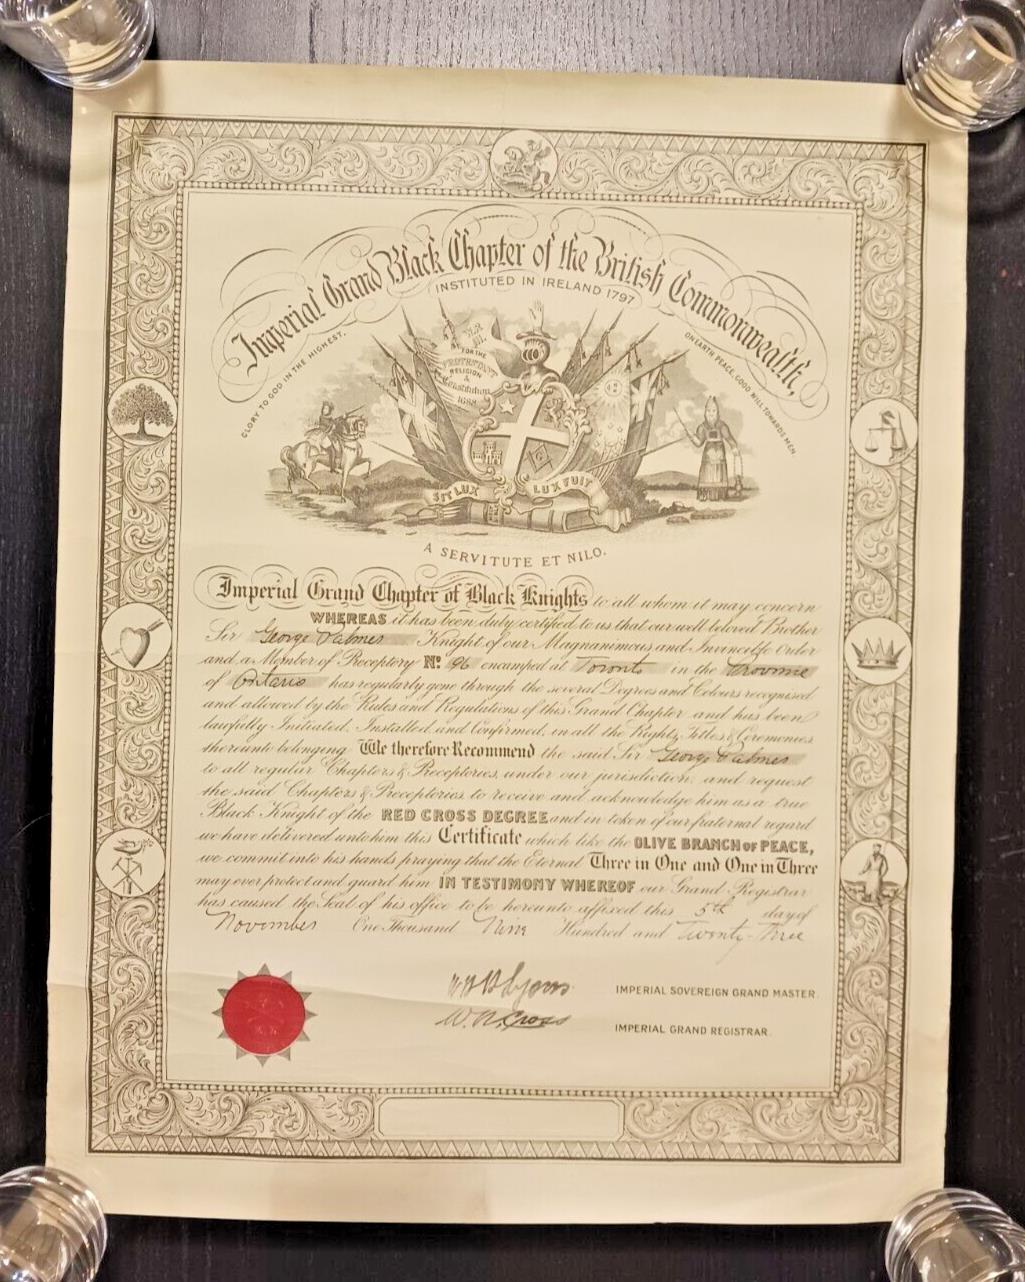 Imperial Grand Black Chapter of the British Commonwealth,
INSTITUTED IN IRELAND 1797
GLORY TO GOD IN THE HIGHEST,
ON EARTH PEACE, GOOD WILL TOWARDS MEN.
FOR THE
PROTESTANT
RELIGION
&
Constitution
1688
SIT LUX LUX FUIT
A SERVITUTE ET NILO.
Imperial Grand Chapter of Black Knights to all whom it may concern
WHEREAS it has been duly certified to us that our well beloved Brother
Sir George Palmer Knight of our Magnanimous and Invincible Order
and a Member of Preceptory No. 96 encamped at Toronto in the Province
of Ontario has regularly gone through the several Degrees and Colours recognised
and allowed by the Rules and Regulations of this Grand Chapter and has been
lawfully Initiated, Installed and Confirmed, in all the Rights, Titles & Ceremonies
thereunto belonging We therefore Recommend the said Sir George Palmer
to all regular Chapters & Preceptories, under our jurisdiction, and request
the said Chapters & Preceptories, to receive and acknowledge him as a true
Black Knight of the RED CROSS DEGREE and in token of our fraternal regard
we have delivered unto him this Certificate which like the OLIVE BRANCH OF PEACE,
we commit into his hands praying that the Eternal Three in One and One in Three
may ever protect and guard him IN TESTIMONY WHEREOF our Grand Registrar
has caused the Seal of his office to be hereunto affixed this 5th day of
November One Thousand Nine Hundred and Twenty-Three
Lyons IMPERIAL SOVEREIGN GRAND MASTER.
Cross IMPERIAL GRAND REGISTRAR.